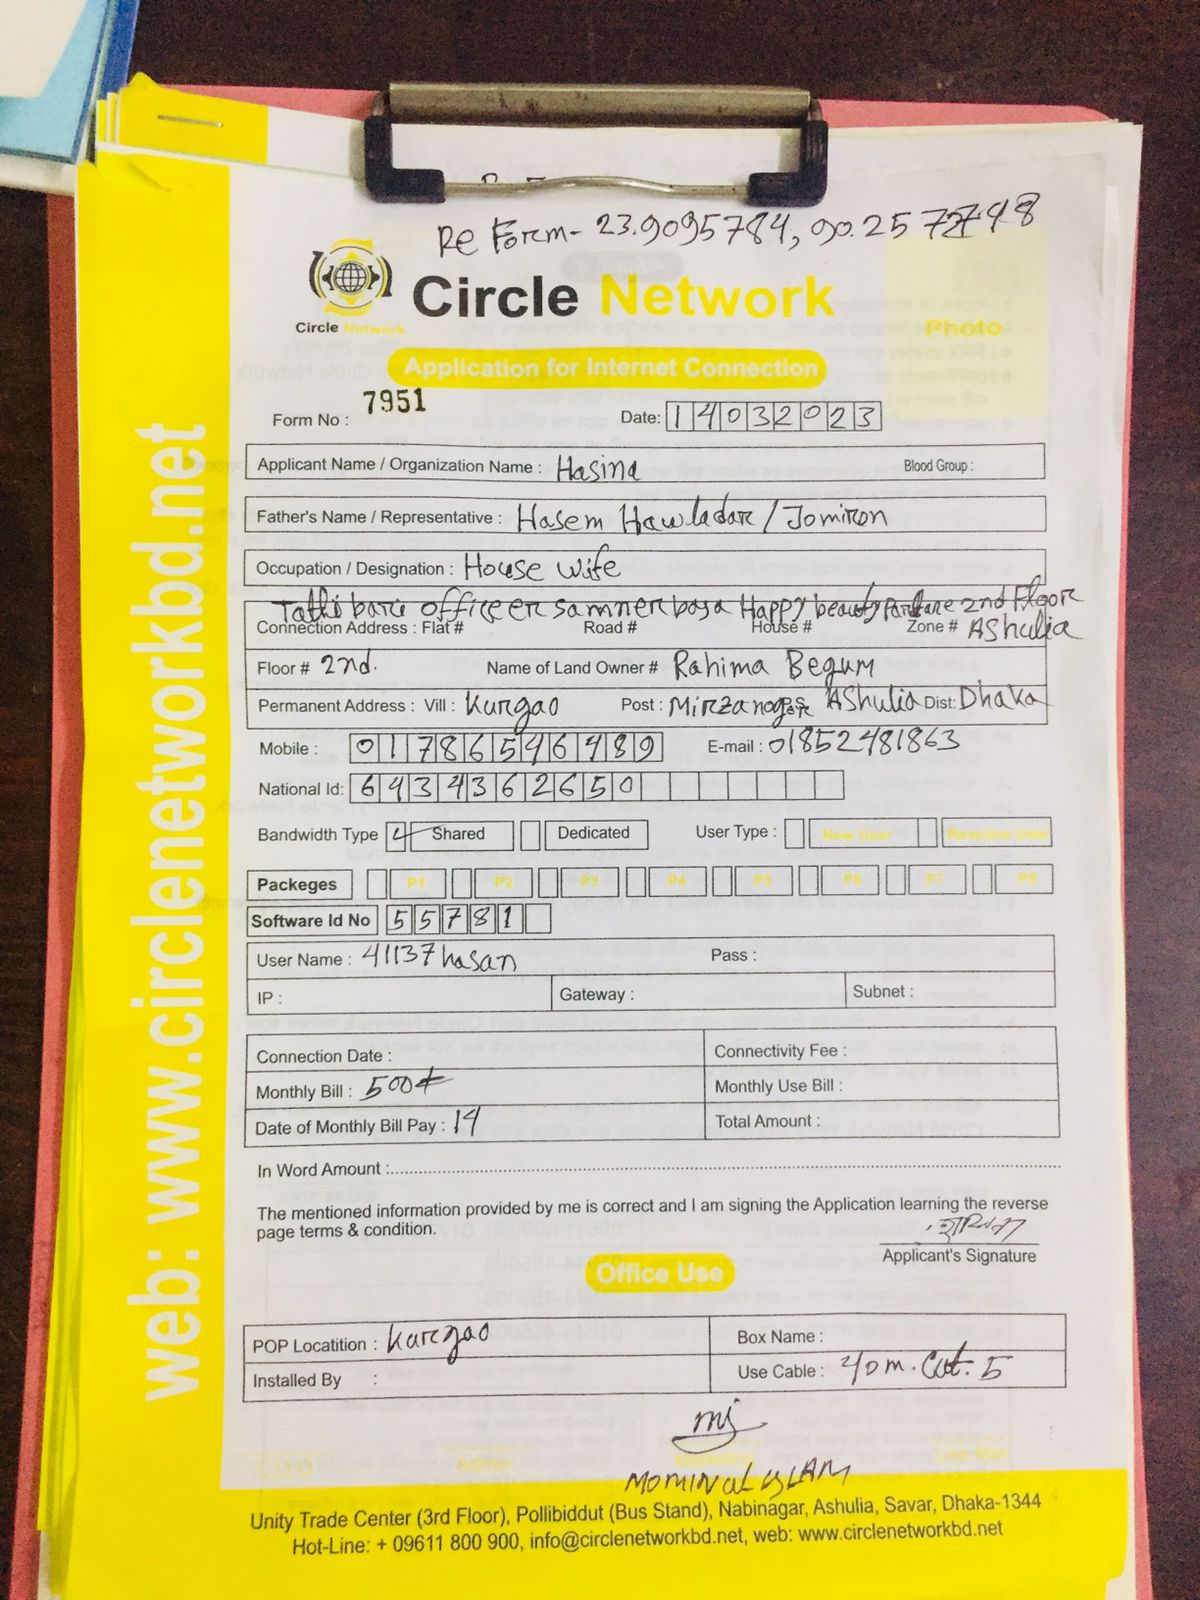 Re Form- 23.9095784, 90.2572748
Circle Network
Circle Network
Photo
Application for Internet Connection
Form No : 7951
Date: 14032023
Applicant Name / Organization Name : Hasina
Blood Group :
Father's Name / Representative : Hasem Hawladar / Jomiron
Occupation / Designation : House wife
Tathi bari office er samner basa Happy beauty 2nd Floor
Connection Address : Flat # Road # House # Zone # AShulia
Floor # 2nd. Name of Land Owner # Rahima Begum
Permanent Address : Vill : Kurgao Post : Mirzanagar AShulia Dist: Dhaka
Mobile : 01786546489 E-mail : 01852481863
National Id: 6434362650
Bandwidth Type Shared Dedicated User Type : New User Reactive User
Packeges P1 P2 P3 P4 P5 P6 P7 P8
Software Id No 55781
User Name : 41137hasan Pass :
IP : Gateway : Subnet :
Connection Date : Connectivity Fee :
Monthly Bill : 500 Monthly Use Bill :
Date of Monthly Bill Pay : 14 Total Amount :
In Word Amount :
The mentioned information provided by me is correct and I am signing the Application learning the reverse
page terms & condition.
হাসিনা
Applicant's Signature
Office Use
POP Locatition : Kurgao Box Name :
Installed By : Use Cable : 40m. Cat. 5
Admin Marketing Line Man
Mominul Islam
Unity Trade Center (3rd Floor), Pollibiddut (Bus Stand), Nabinagar, Ashulia, Savar, Dhaka-1344
Hot-Line: + 09611 800 900, info@circlenetworkbd.net, web: www.circlenetworkbd.net
web: www.circlenetworkbd.net